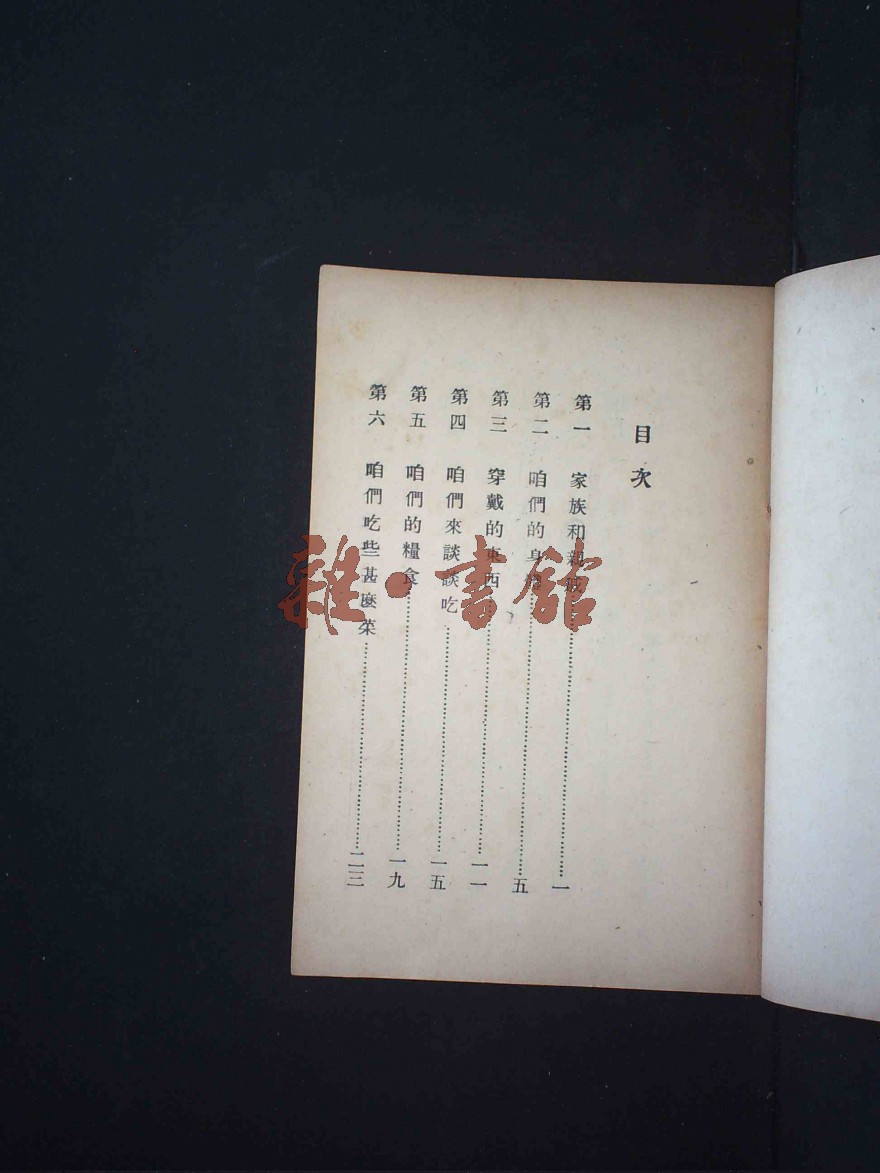 目次
第一 家族和親戚……一
第二 咱們的身體……五
第三 穿戴的東西……一一
第四 咱們來談談吃……一五
第五 咱們的糧食……一九
第六 咱們吃些甚麼菜……二三
雜·書館